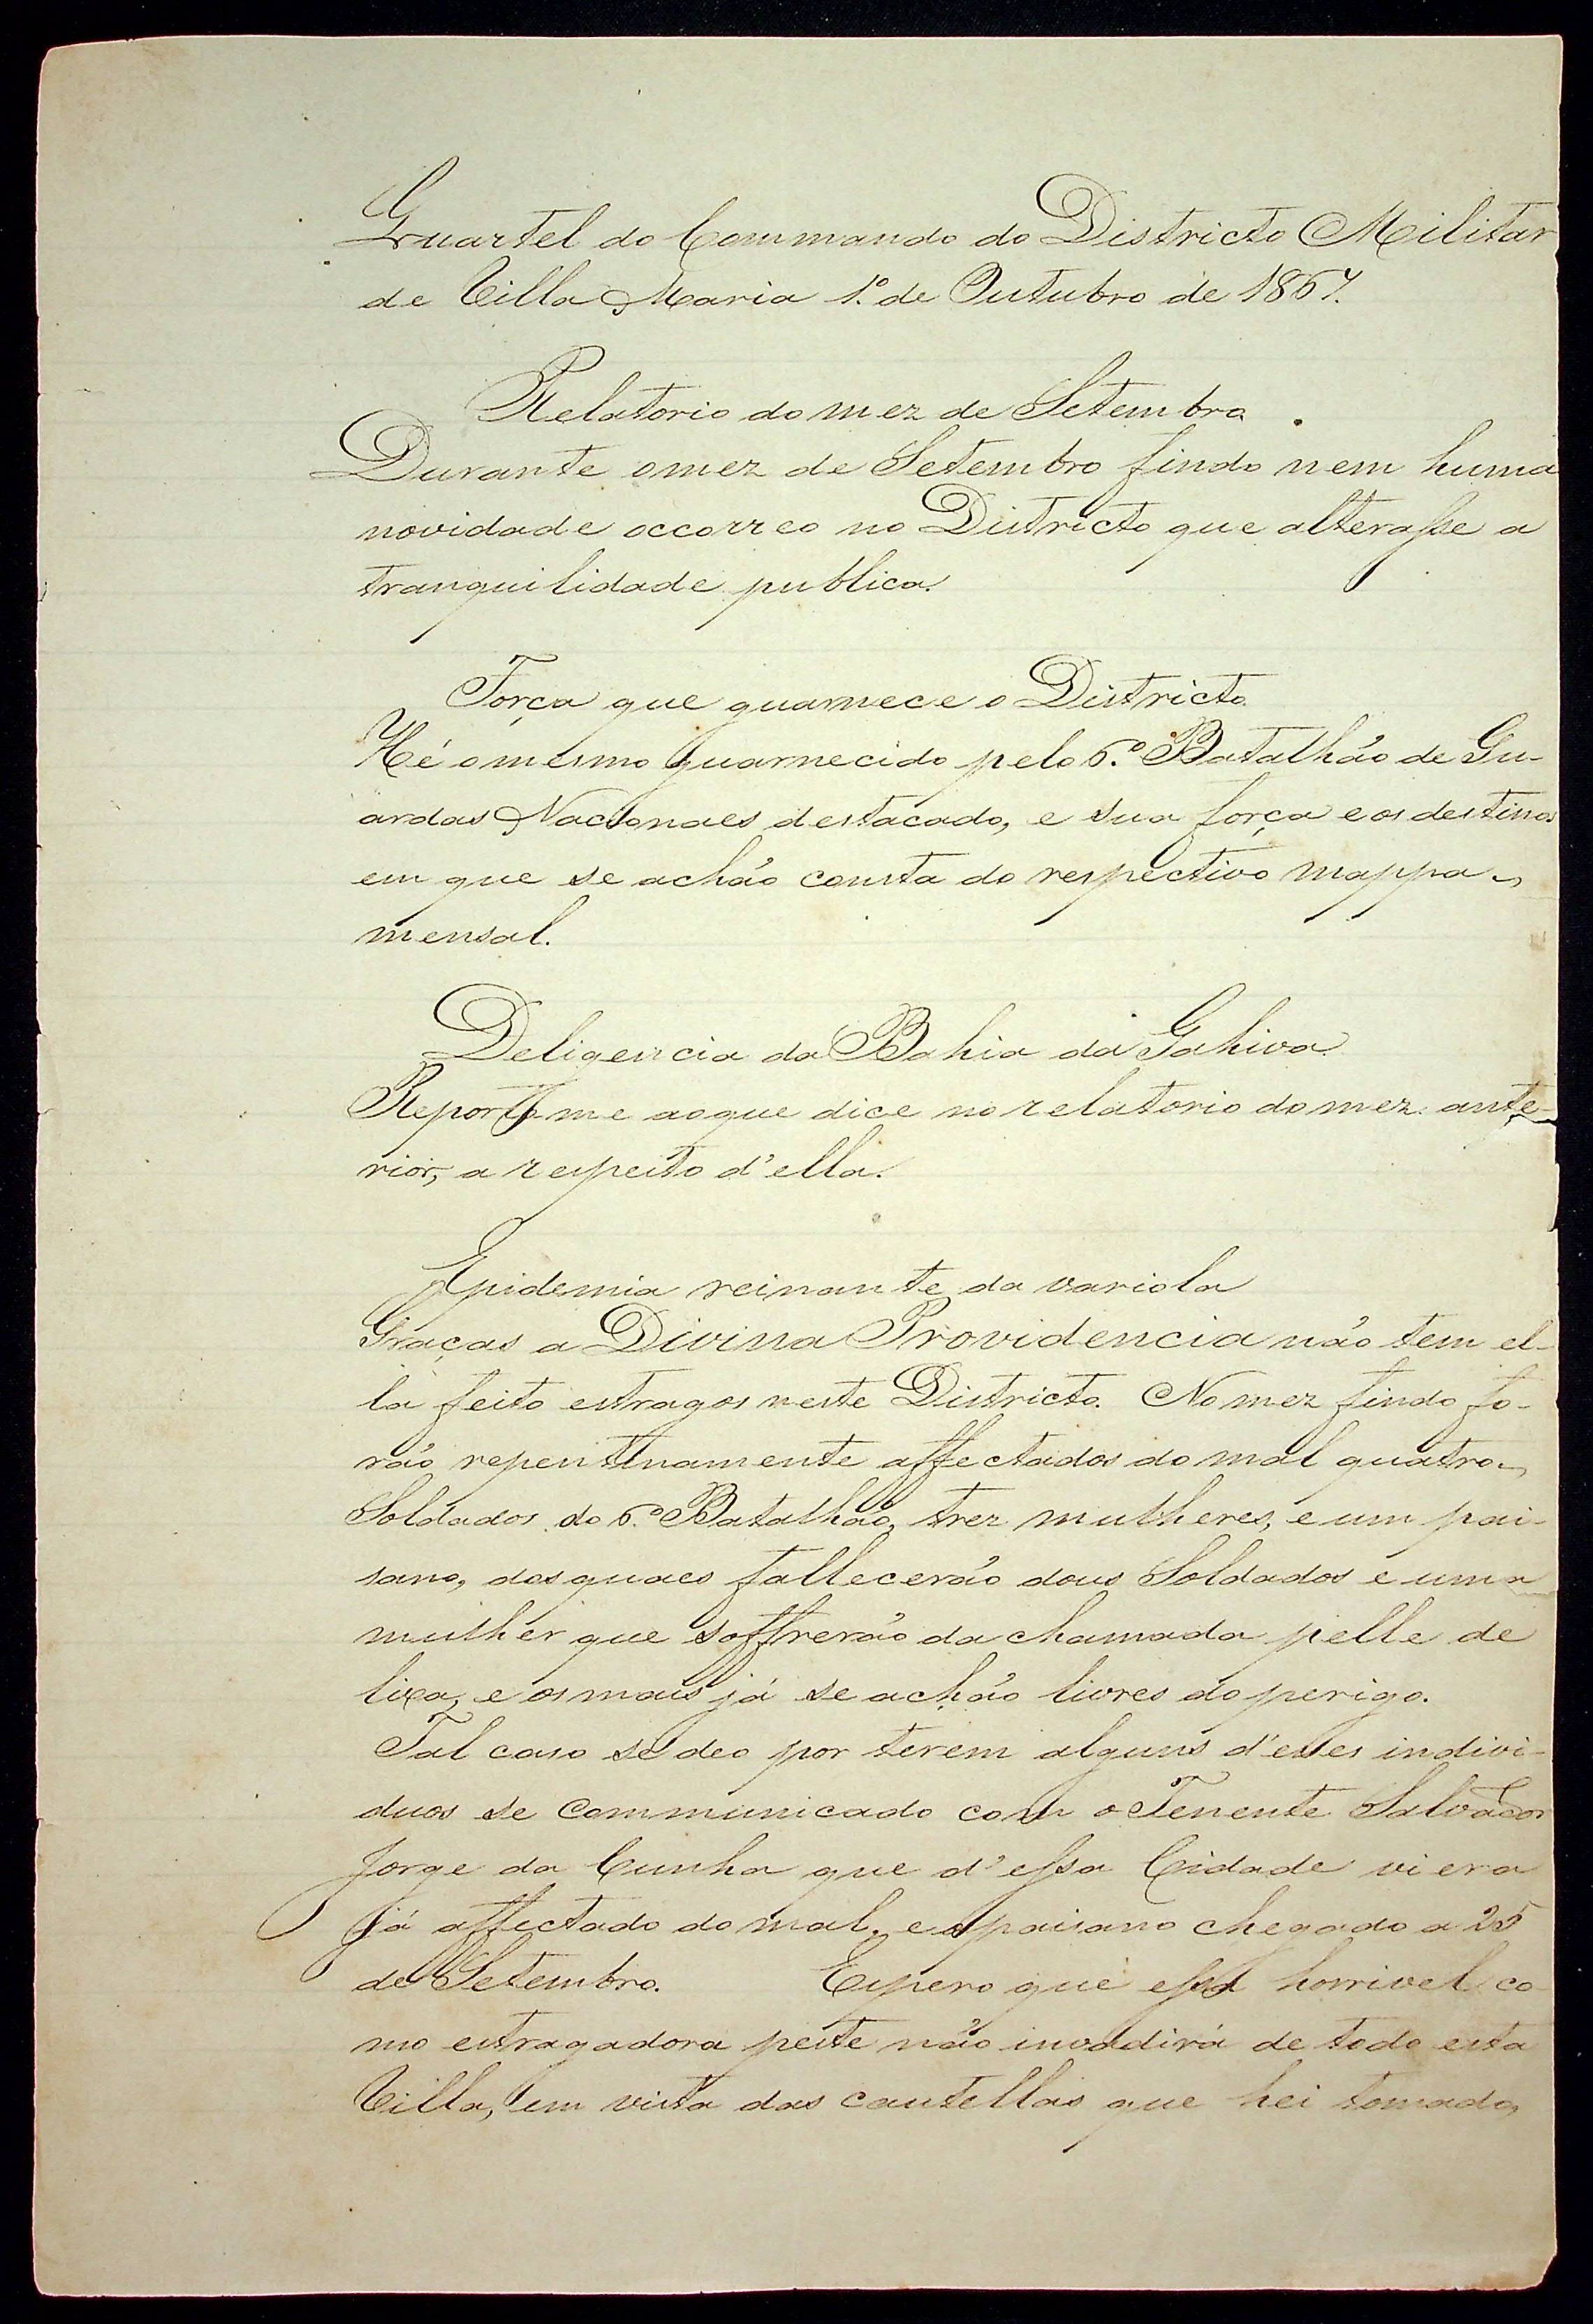 Quartel do Commando do Districto Militar
de Villa Maria 1º de Outubro de 1867.
Relatorio do mez de Setembro.
Durante o mez de Setembro findo nem huma
novidade occorreo no Districto que alterasse a
tranquilidade publica.
Força que guarnece o Districto
Hé o mesmo guarnecido pelo 6º Batalhão de Gu-
ardas Nacionaes destacado, e sua força e os destinos
em que se achão consta do respectivo mappa
mensal.
Deligencia da Bahia da Gahiva
Reporto me ao que dice no relatorio do mez ante-
rior, a respeito d'ella.
Epidemia reinante da variola
Graças a Divina Providencia não tem el-
la feito estragos neste Districto. No mez findo fo-
rão repentinamente affectados do mal quatro
Soldados do 6º Batalhão, trez mulheres, e um pai-
sano, dos quaes fallecerão dous Soldados e uma
mulher que soffrerão da chamada pelle de
lixa, e os mais já se achão livres do perigo.
Tal caso se deo por terem alguns d'esses indivi-
duos se communicado com o Tenente Salvador
Jorge da Cunha que d'essa Cidade viera
já affectado do mal, e o paisano chegado a 25
de Setembro. Espero que essa horrivel co-
mo estragadora peste não invadirá de todo esta
Villa, em vista das cautellas que hei tomado,